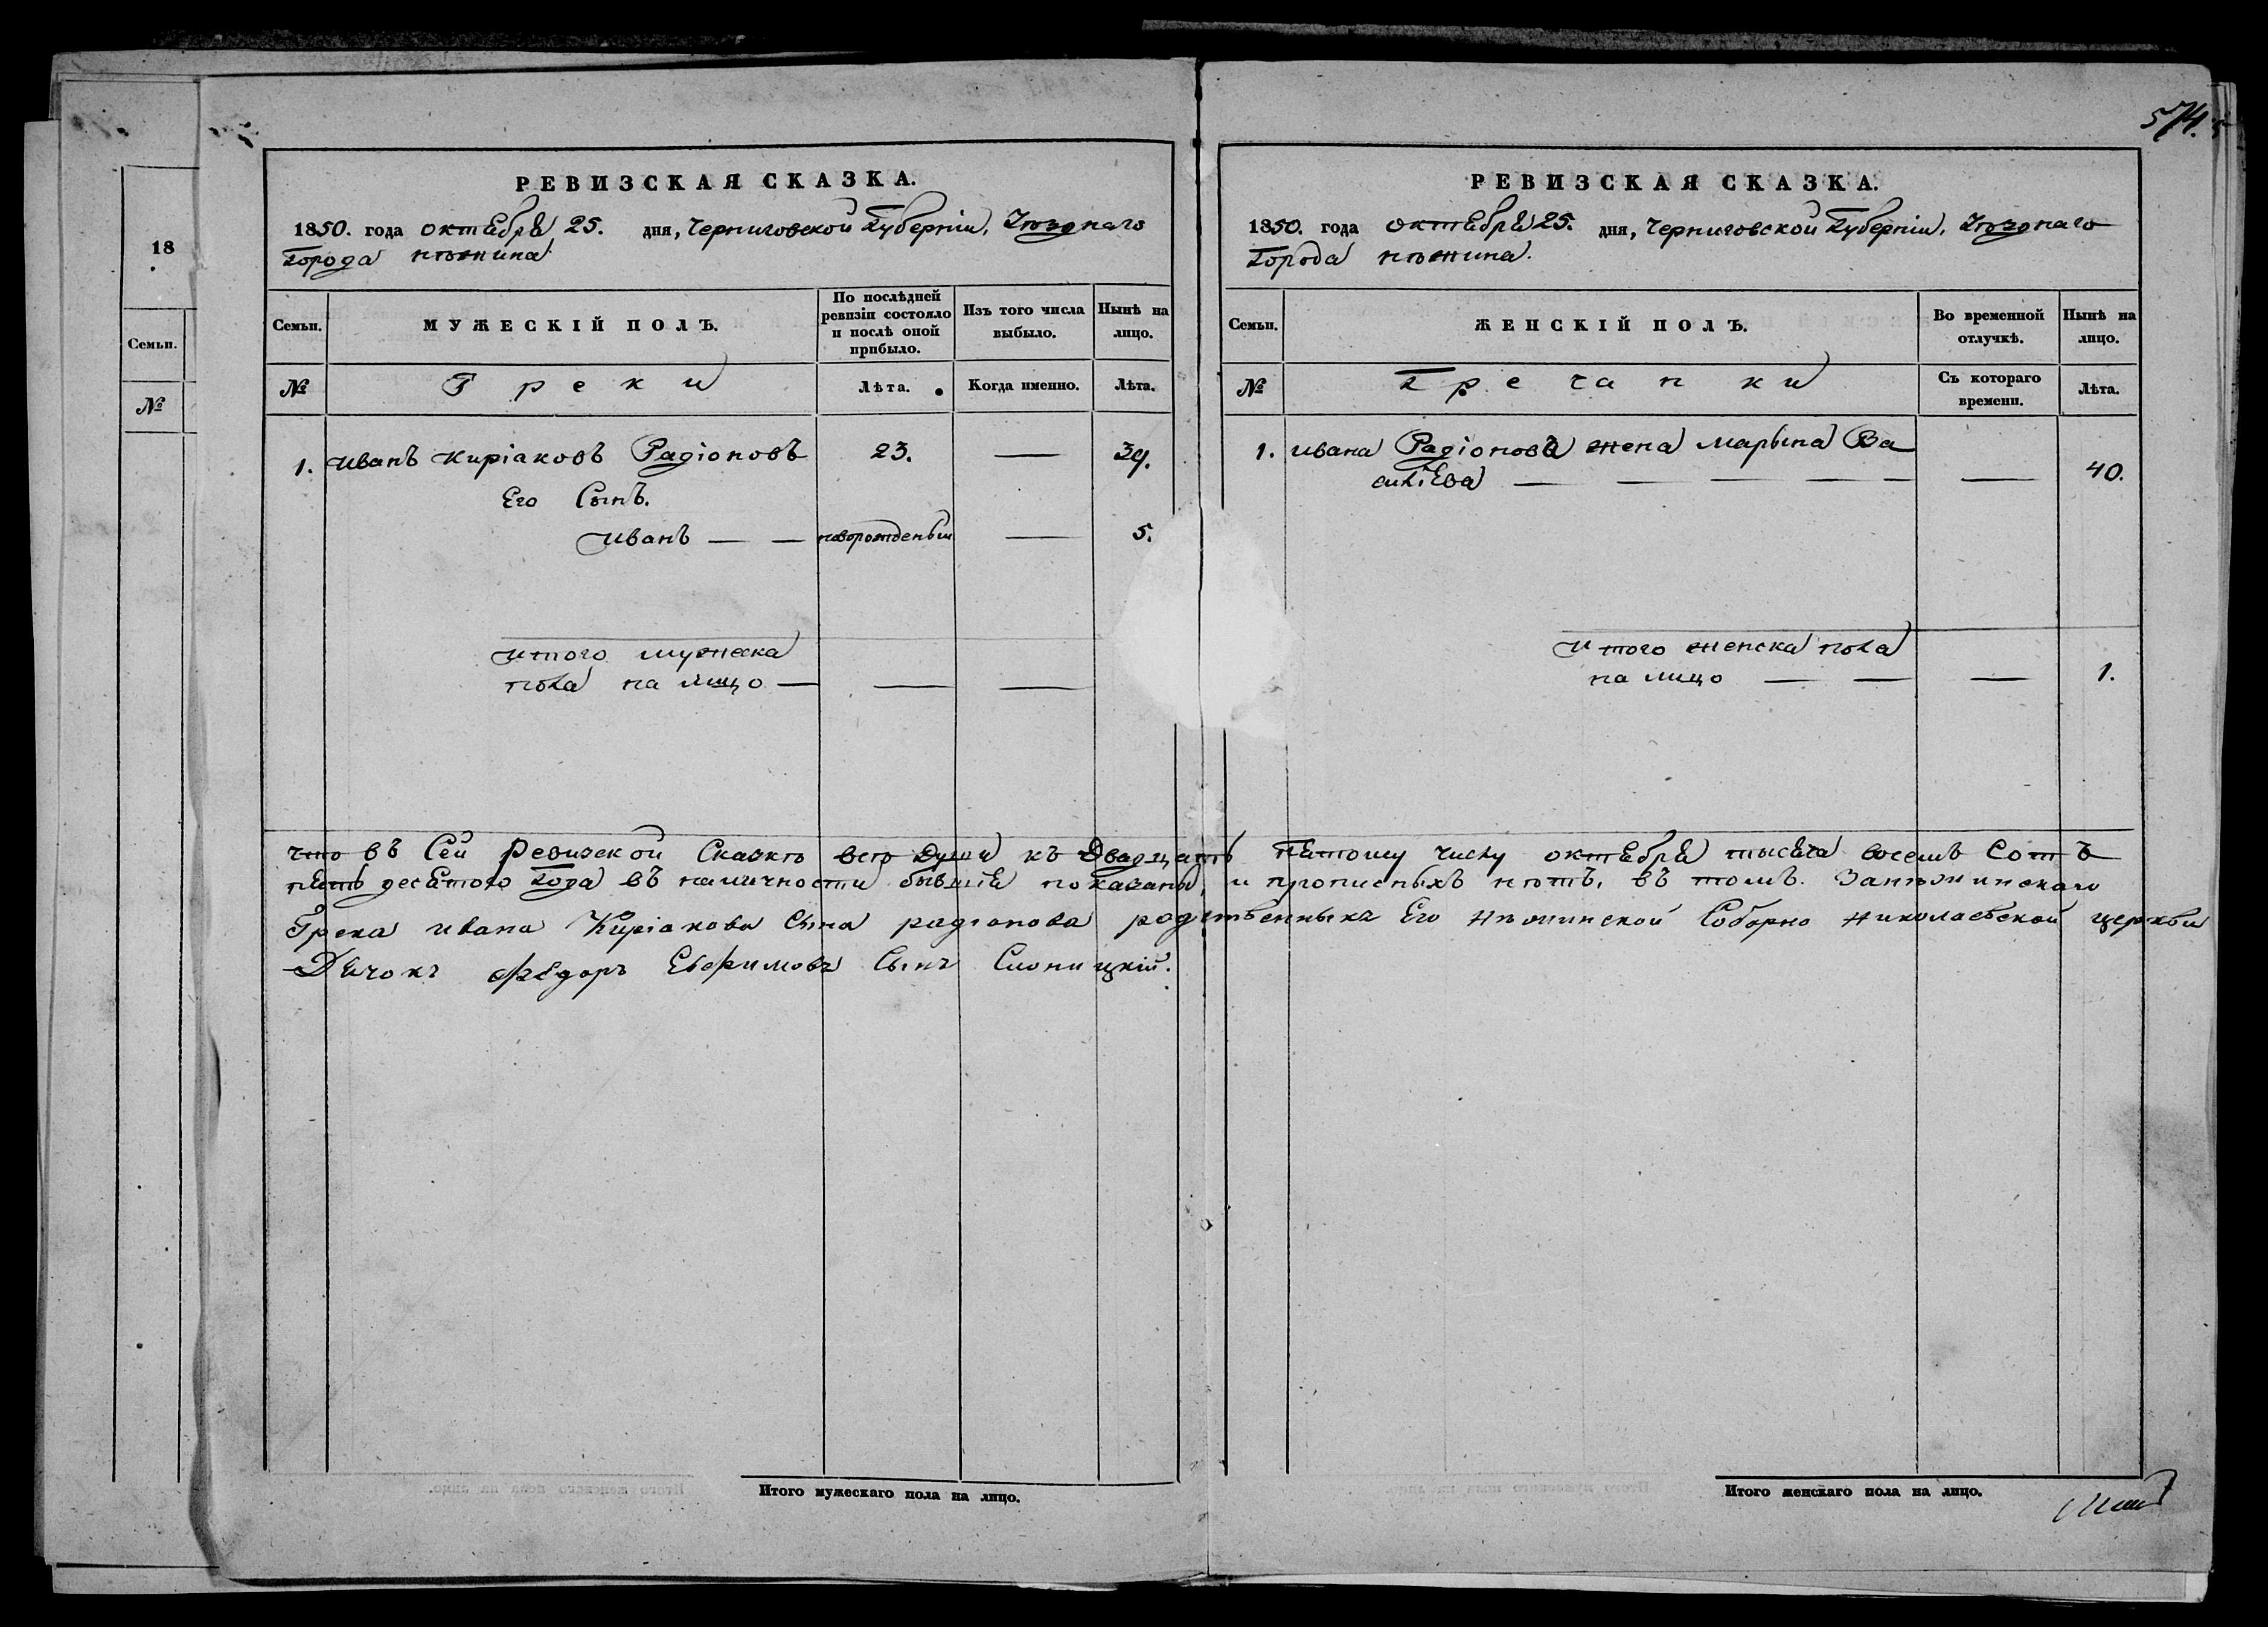 574.
18
Семьи.
№
РЕВИЗСКАЯ СКАЗКА.
1850. года октября 25. дня, Черниговской Губерніи, Уѣзднаго
Города нѣжина
Семьи.
МУЖЕСКІЙ ПОЛЪ.
По послѣдней ревизіи состояло и послѣ оной прибыло.
Изъ того числа выбыло.
Нынѣ на лицо.
№
Греки
Лѣта.
Когда именно.
Лѣта.
1. Иванъ Киріаковъ Радіоновъ 23. — 39.
Его Сынъ.
Иванъ — — новорожденый — 5.
Итого мужеска
пола на лицо — — —
РЕВИЗСКАЯ СКАЗКА.
1850. года октября 25. дня, Черниговской Губерніи, Уѣзднаго
Города нѣжина.
Семьи.
ЖЕНСКІЙ ПОЛЪ.
Во временной отлучкѣ.
Нынѣ на лицо.
№
Гречанки
Съ котораго времени.
Лѣта.
1. Ивана Радіонова жена Марьина Ва
силіева — — — — — — 40.
Итого женска пола
на лицо — — — 1.
что въ Сей Ревизской Сказкѣ всѣ души къ Двадцать Пятому числу октября тысяча восемь Сотъ
пять десятого Года въ наличности бывшія показаны, и прописныхъ нѣтъ. въ томъ. За нѣжинскаго
Грека Ивана Киріакова Сына радіонова родственныкъ Его Нѣжинской Соборно Николаевской церкви
Дячокъ Федоръ Евфимовъ Сынъ Слоницкій.
Итого мужескаго пола на лицо.
Итого женскаго пола на лицо.